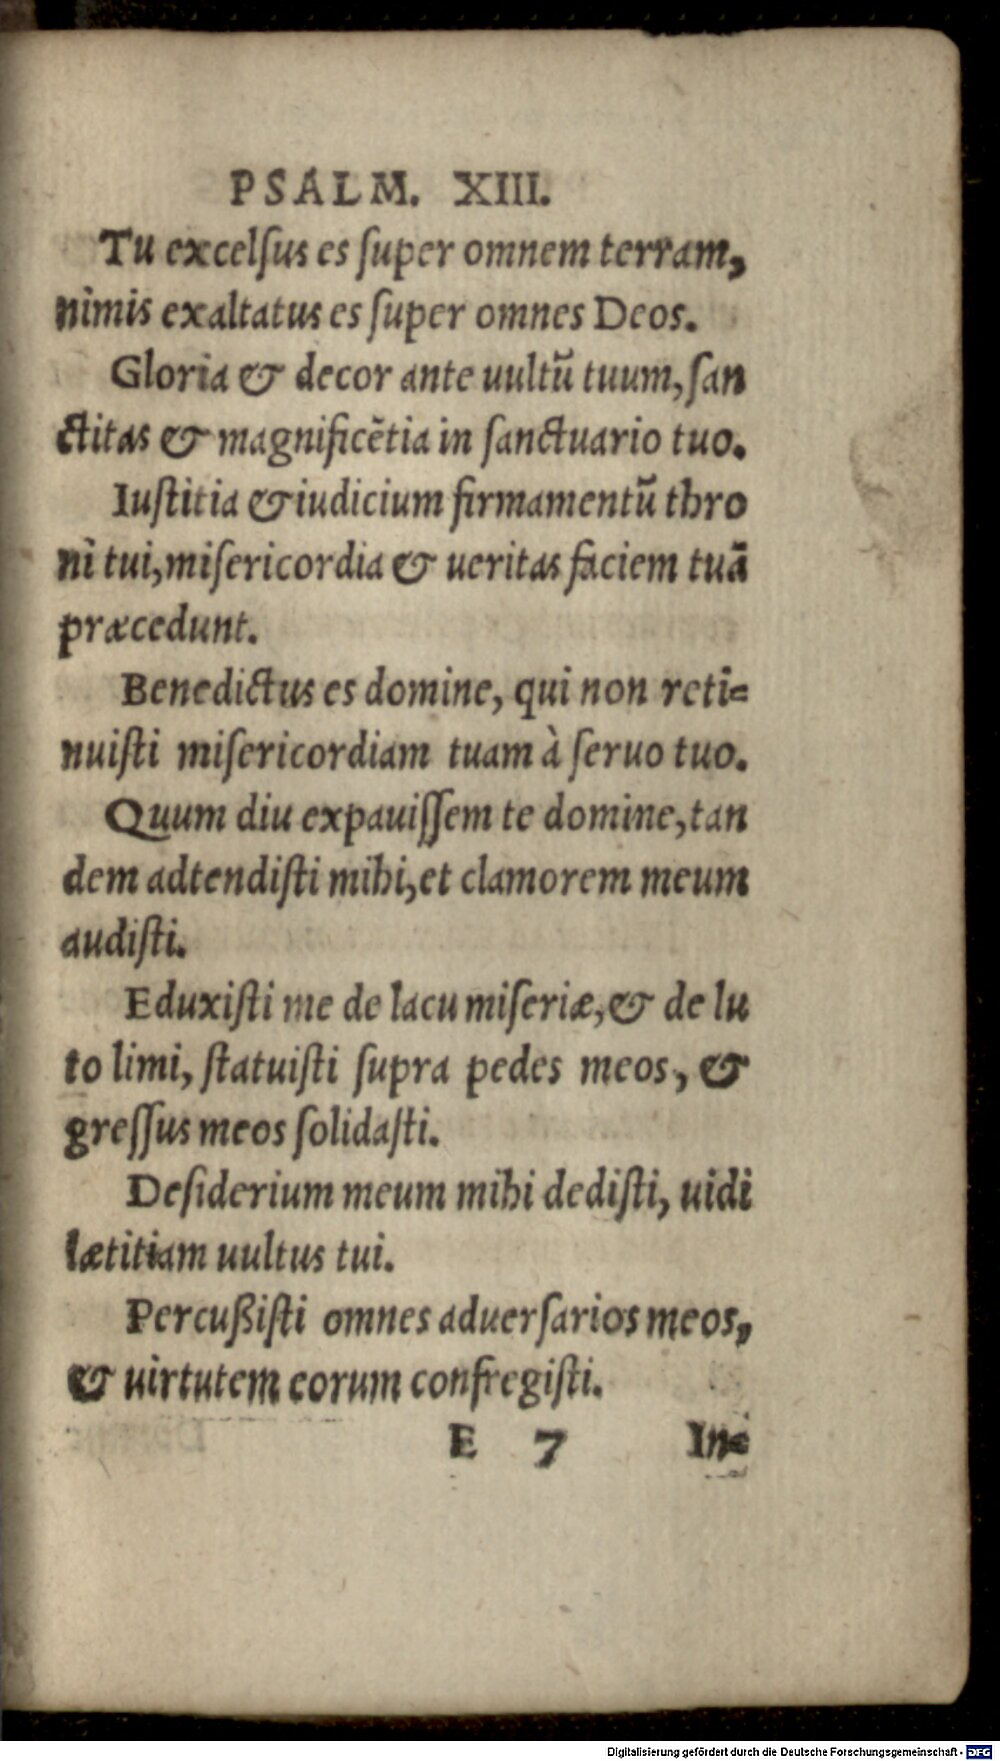 PSALM. XIII.
Tu excelſus es ſuper omnem terram,
nimis exaltatus es ſuper omnes Deos.
Gloria & decor ante uultũ tuum, ſan
ctitas & magnificẽtia in ſanctuario tuo.
Iuſtitia & iudicium firmamentũ thro
ni tui, miſericordia & ueritas faciem tuã
præcedunt.
Benedictus es domine, qui non reti=
nuiſti miſericordiam tuam à ſeruo tuo.
Quum diu expauiſſem te domine, tan
dem adtendiſti mihi, et clamorem meum
audiſti.
Eduxiſti me de lacu miſeriæ, & de lu
to limi, ſtatuiſti ſupra pedes meos, &
greſſus meos ſolidaſti.
Deſiderium meum mihi dediſti, uidi
lætitiam uultus tui.
Percußiſti omnes aduerſarios meos,
& uirtutem eorum confregiſti.
E 7 In=
Digitalisierung gefördert durch die Deutsche Forschungsgemeinschaft - DFG